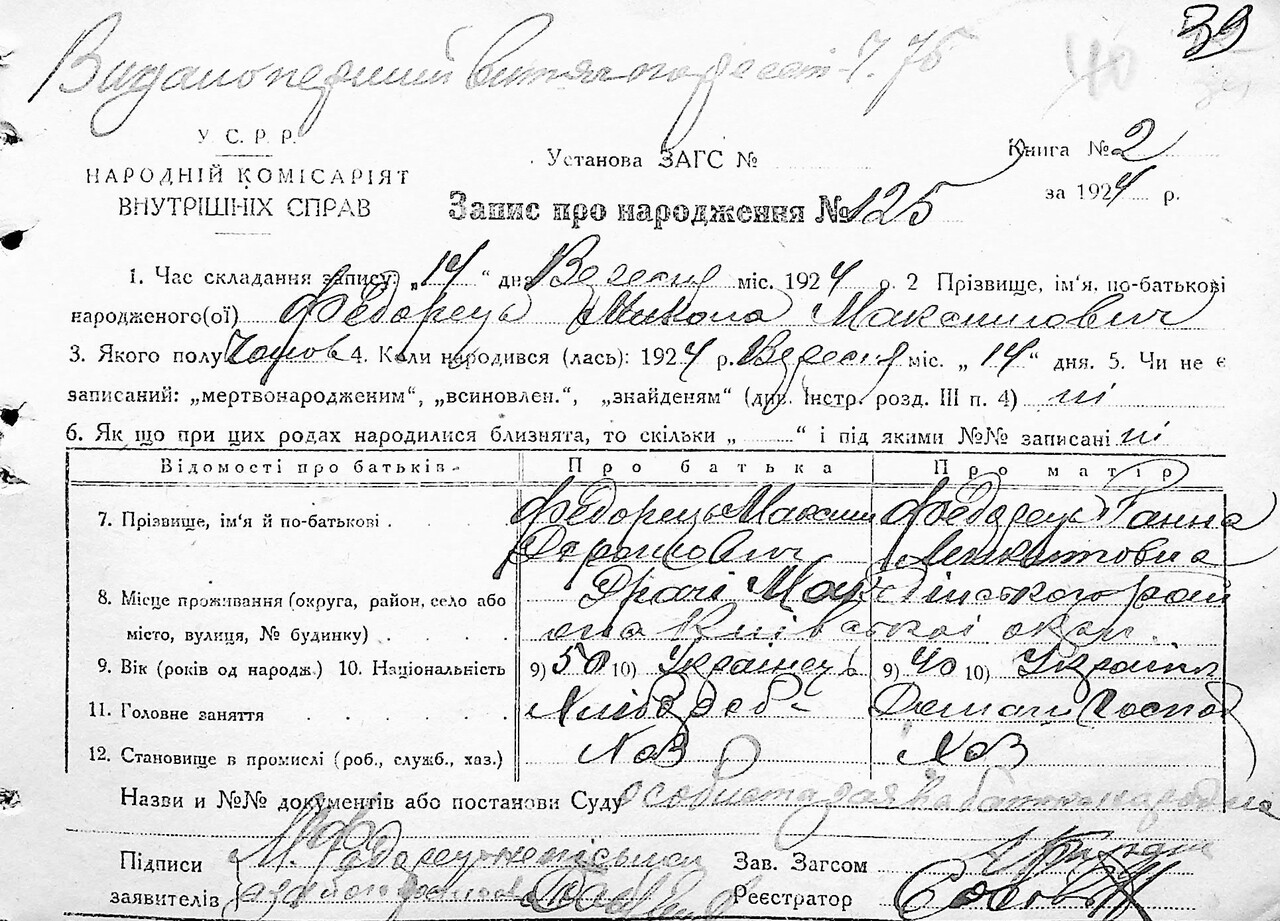 39
40
Видано перший витяг
У. С. Р. Р.
НАРОДНІЙ КОМІСАРІЯТ
ВНУТРІШНІХ СПРАВ
Установа ЗАГС №
Книга № 2
за 1924 р.
Запис про народження № 125
1. Час складання запису: „14“ дня Вересня міс. 1924 р. 2 Прізвище, ім'я, по-батькові
народженого(ої) Федорець Микола Максимович
3. Якого полу Чолов 4. Коли народився (лась): 1924 р. Вересня міс. „14“ дня. 5. Чи не є
записаний: „мертвонародженим“, „всиновлен.“, „знайденям“ (див. Інстр. розд. III п. 4) ні
6. Як що при цих родах народилися близнята, то скільки „ “ і під якими №№ записані ні
Відомості про батьків Про батька Про матір
7. Прізвище, ім'я й по-батькові Федорець Максим Федорець Ганна
Микитовна
8. Місце проживання (округа, район, село або
місто, вулиця, № будинку) она Київської окр.
9. Вік (років од народж.) 10. Національність 9) 50 10) Українець 9) 40 10) Українка
11. Головне заняття Хлібороб Домаш Господ
12. Становище в промислі (роб., служб., хаз.) Хаз Хаз
Назви и №№ документів або постанови Суду особиста заява батька
Підписи М. Федорець неписьмен Зав. Загсом
заявителів Реєстратор